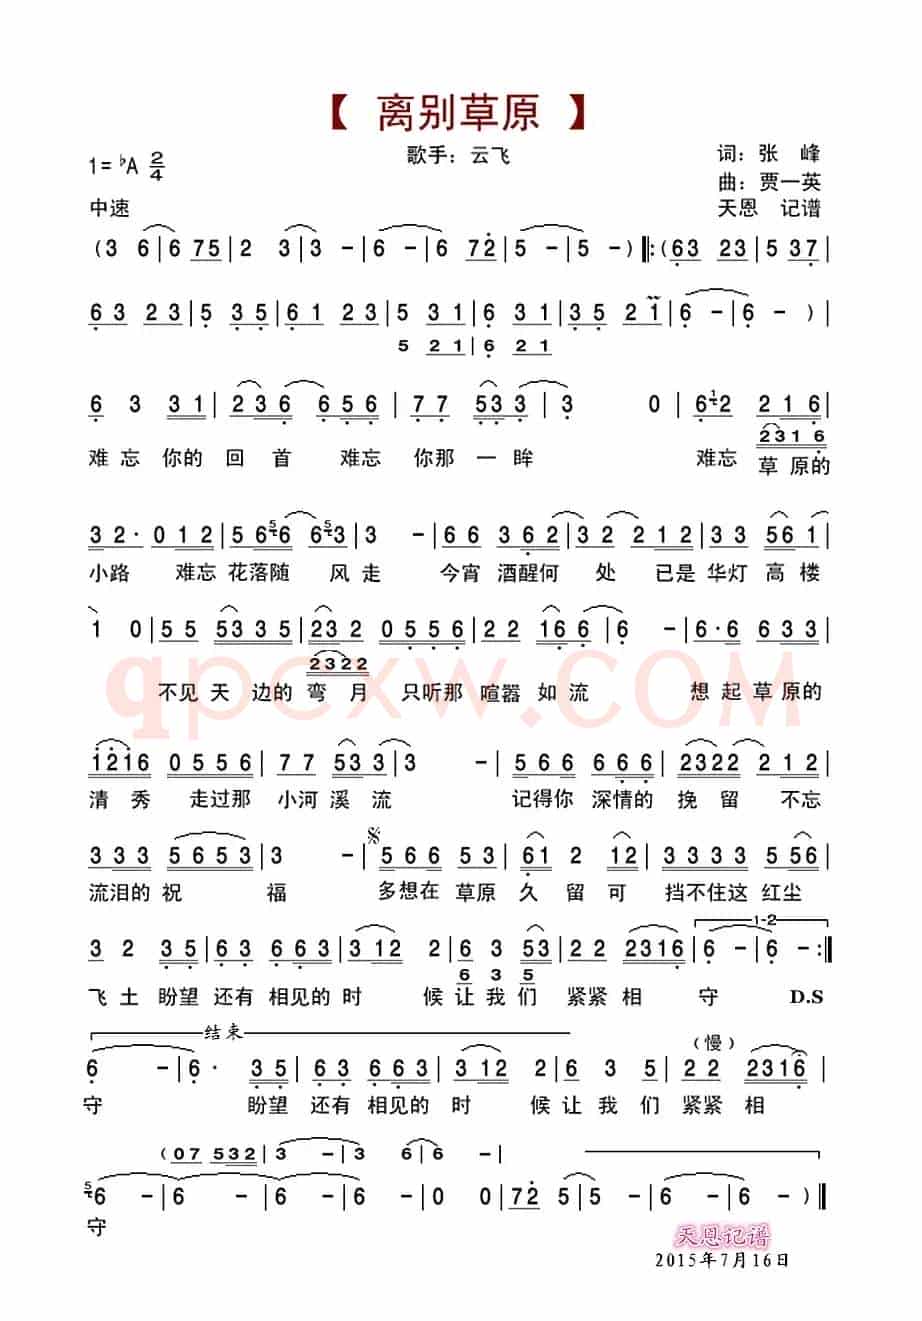 【 离别草原 】
1=♭A 2/4
歌手：云飞
词：张 峰
曲：贾一英
中速
天恩 记谱
(3 6|6 75|2 3|3 -|6 -|6 72|5 -|5 -)‖:(63 23|5 37|
63 23|5 35|61 23|5 31|6 31|35 21|6 -|6 -)|
5 21|6 21
6 3 31|236 656|77 533|3 0|62 216|
2316
难忘 你的 回 首 难忘 你那 一 眸 难忘 草原的
32· 012|5666 663|3 -|66 362|32 212|33 561|
小路 难忘 花落随 风走 今宵 酒醒何 处 已是 华灯 高楼
1 0|55 5335|232 0556|22 166|6 -|6·6 633|
2322
不见 天 边的 弯 月 只听那 喧嚣 如流 想起 草原的
qpcxw.COM
1216 0556|77 533|3 -|566 666|2322 212|
清 秀 走过那 小河 溪流 记得你 深情的 挽 留 不忘
333 5653|3 -|566 53|61 2 12|333 556|
流泪的 祝 福 多想在 草原 久 留 可 挡不住这 红尘
1-2
3 2 35|63 663|312 2|6 3 53|22 2316|6 -|6 -:‖
6 3 5
飞 土 盼望 还有 相见的 时 候 让 我 们 紧紧 相 守 D.S
结束
(慢)
6 -|6· 35|63 663|312 2|6 3 5|22 2316|
守 盼望 还有 相见的 时 候 让 我 们 紧紧 相
(07 532|3 -|3 6|6 -|
56 -|6 -|6 -|6 -|0 0|72 5|5 -|6 -|6 -)‖
守
天恩记谱
2015年7月16日